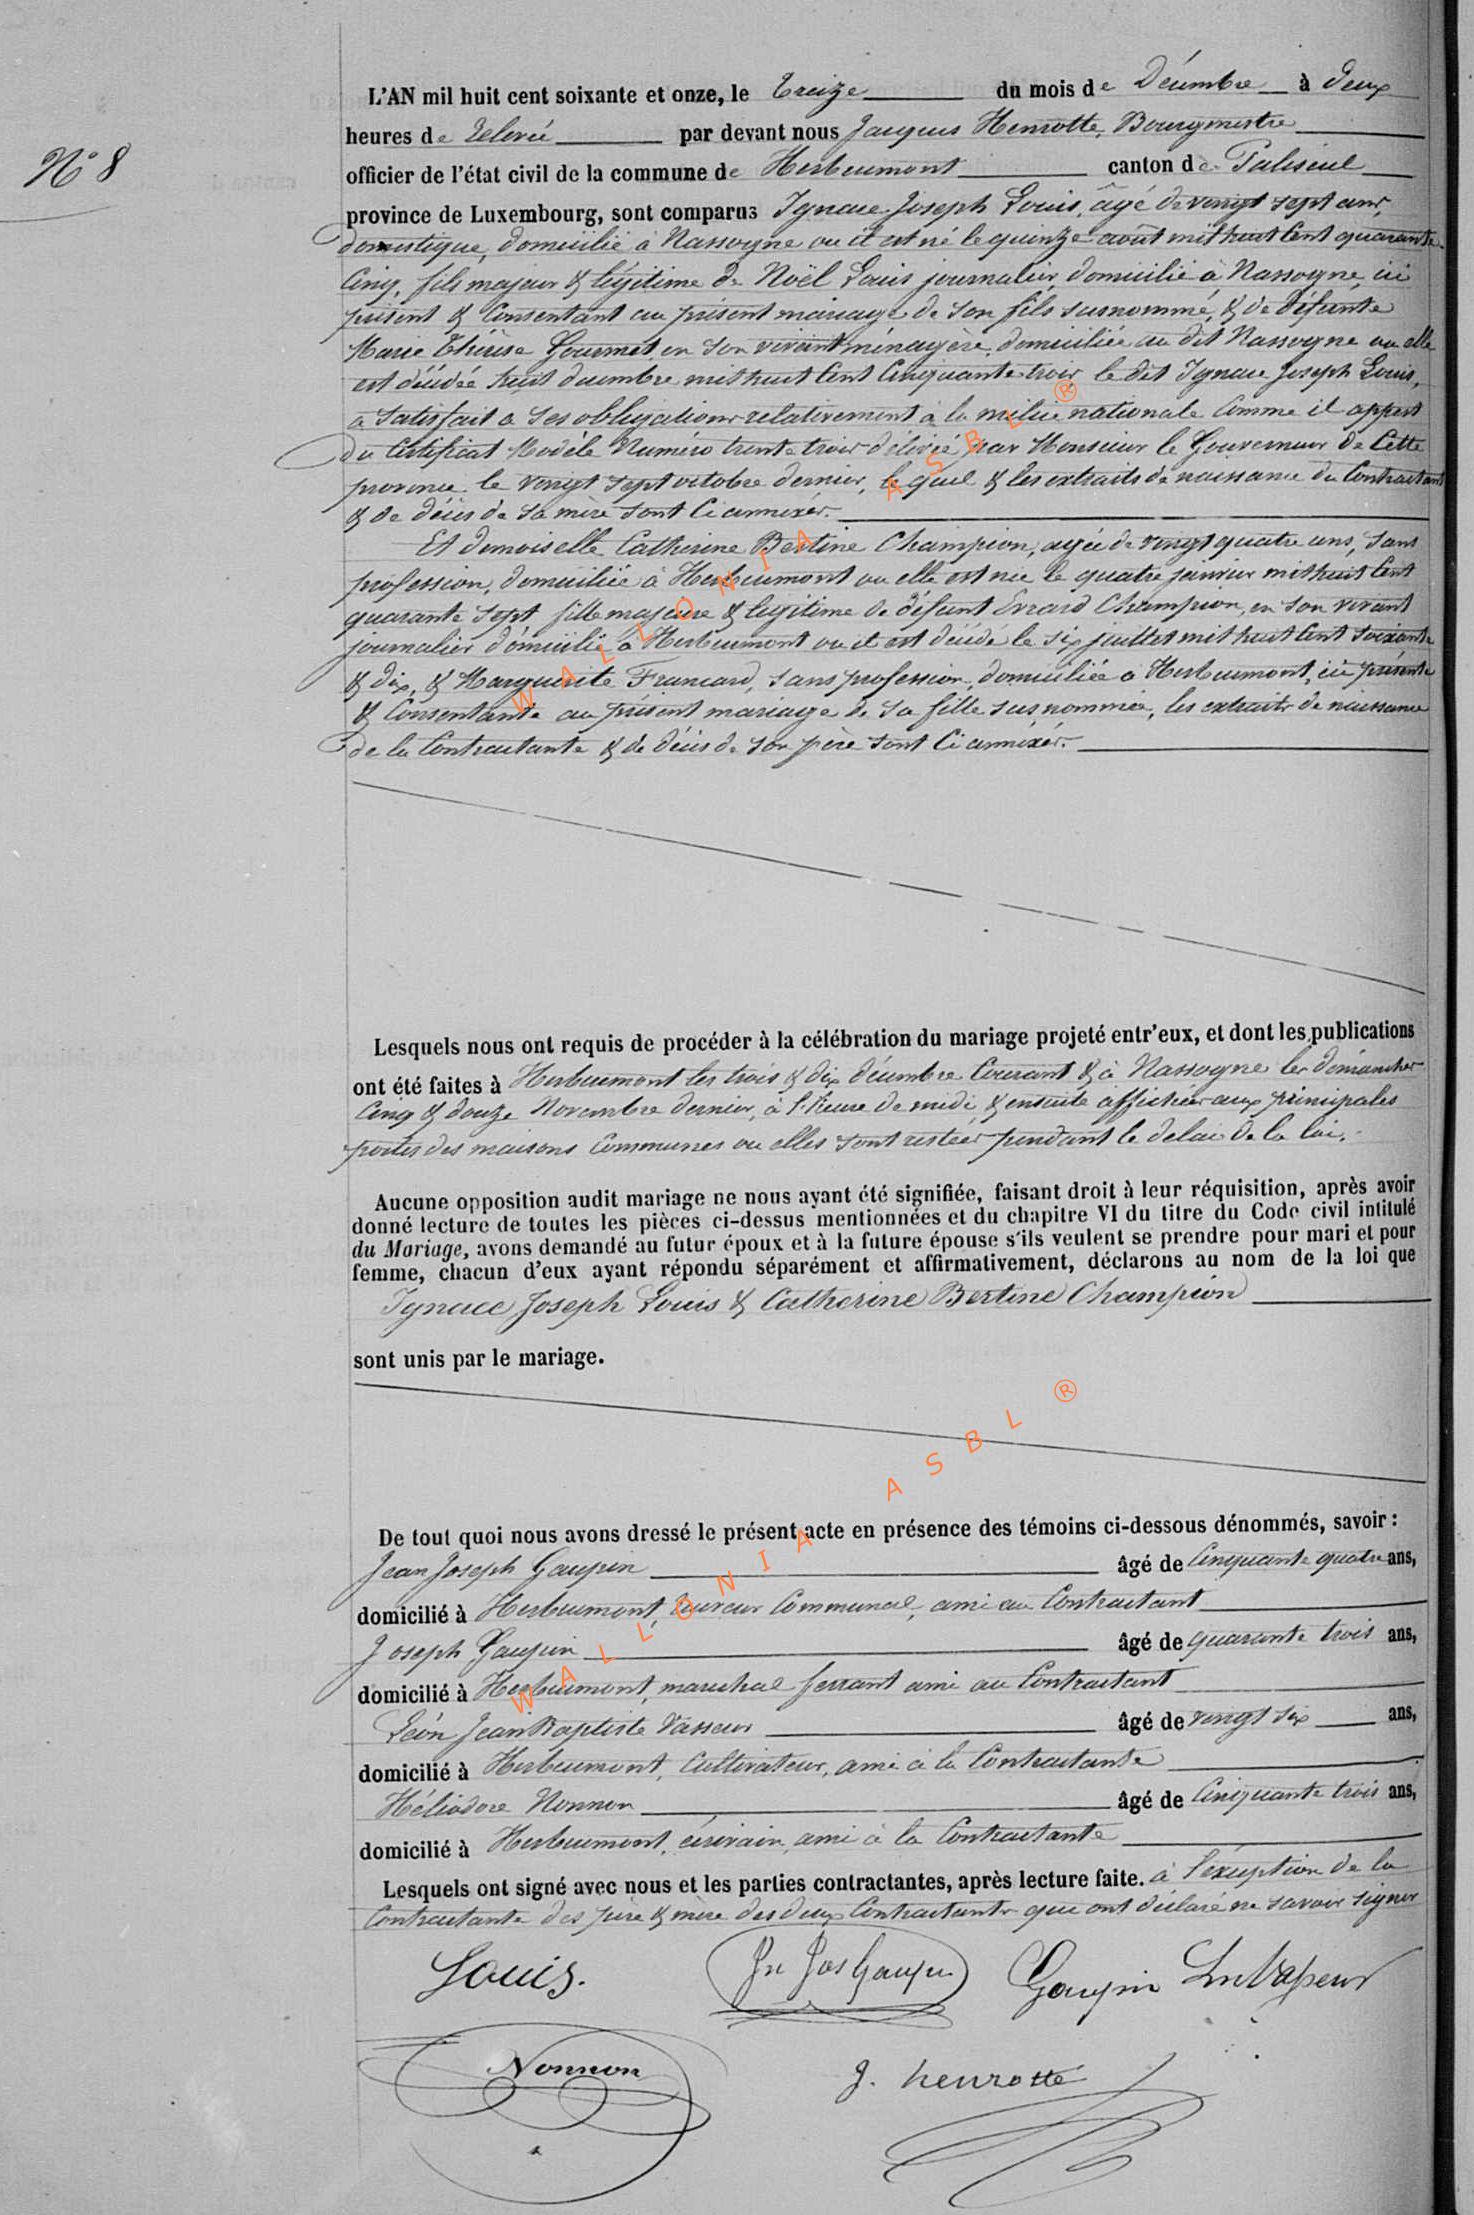 N° 8
L'AN mil huit cent soixante et onze, le treize du mois de Décembre à deux
heures de relevée par devant nous Jacques Henrotte, Bourgmestre
officier de l'état civil de la commune de Herbeumont canton de Paliseul
province de Luxembourg, sont comparus Ignace Joseph Louis, âgé de vingt sept ans,
domestique, domicilié à Nassogne ou il est né le quinze août mil huit cent quarante
cinq, fils majeur & légitime de Noël Louis journalier, domicilié à Nassogne, ici
présent & consentant au présent mariage de son fils susnommé, & de défunte
Marie Thérèse Gourmet en son vivant ménagère, domiciliée au dit Nassogne ou elle
est décédée huit décembre mil huit cent cinquante trois le dit Ignace Joseph Louis,
a satisfait a ses obligations relativement à la milice nationale comme il appert
du certificat Modèle Numéro trente trois délivré par Monsieur le Gouverneur de cette
province le vingt sept octobre dernier, lequel & les extraits de naissance du Contractant
& de décès de sa mère sont ci annexés.
Et demoiselle Catherine Bertine Champion, agée de vingt quatre ans, sans
profession, domiciliée à Herbeumont ou elle est née le quatre janvier mil huit cent
quarante sept fille majeure & légitime de défunt Evrard Champion, en son vivant
journalier domicilié à Herbeumont ou il est décédé le six juillet mil huit cent soixante
& dix, & Marguerite Francard, sans profession, domiciliée à Herbeumont, ici présente
& consentante au présent mariage de sa fille susnommée, les extraits de naissance
de la Contractante & de décès de son père sont ci annexés.
Lesquels nous ont requis de procéder à la célébration du mariage projeté entr'eux, et dont les publications
ont été faites à Herbeumont les trois & dix décembre courant & à Nassogne les dimanches
cinq & douze Novembre dernier, à l'heure de midi, & ensuite affichées aux principales
portes des maisons communes ou elles sont restées pendant le delai de la loi.
Aucune opposition audit mariage ne nous ayant été signifiée, faisant droit à leur réquisition, après avoir
donné lecture de toutes les pièces ci-dessus mentionnées et du chapitre VI du titre du Code civil intitulé
du Mariage, avons demandé au futur époux et à la future épouse s'ils veulent se prendre pour mari et pour
femme, chacun d'eux ayant répondu séparément et affirmativement, déclarons au nom de la loi que
Ignace Joseph Louis & Catherine Bertine Champion
sont unis par le mariage.
De tout quoi nous avons dressé le présent acte en présence des témoins ci-dessous dénommés, savoir :
Jean Joseph Gaupin âgé de cinquante quatre ans,
domicilié à Herbeumont, receveur Communal, ami au Contractant
Joseph Gaupin âgé de quarante trois ans,
domicilié à Herbeumont, marechal ferrant ami au Contractant
Léon Jean Baptiste Vasseur âgé de vingt six ans,
domicilié à Herbeumont, cultivateur, ami à la Contractante
Héliodore Nonnon âgé de cinquante trois ans,
domicilié à Herbeumont, écrivain, ami à la Contractante
Lesquels ont signé avec nous et les parties contractantes, après lecture faite. à l'exception de la
Contractante des père & mère des deux Contractants qui ont déclaré ne savoir signer
Louis. Jn Jos Gaupin Gaupin Ln Vasseur
Nonnon J. henrotte
WALLONIA ASBL ®
WALLONIA ASBL ®